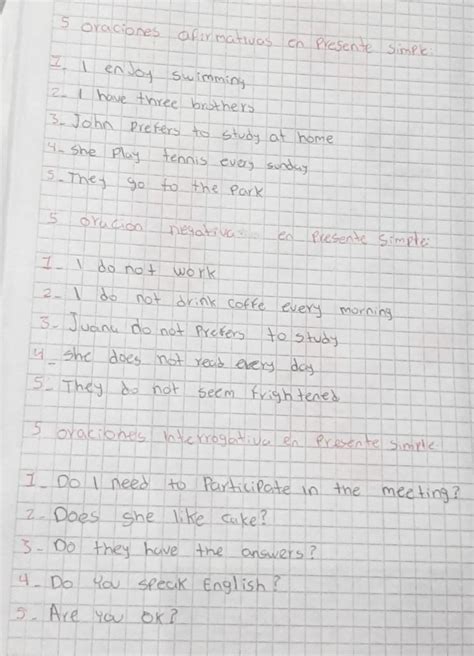 5 oraciones afirmativas en Presente simple.
1. I enjoy swimming
2- I have three brothers
3- John Prefers to study at home
4- she Play tennis every sunday
5- They go to the Park
5 oracion negativa en Presente simple
1- I do not work
2- I do not drink coffe every morning
3- Juana do not Prefers to study
4- she does not read every day
5- They do not seem frightened
5 oraciones interrogativa en Presente simple
1- Do I need to Participate in the meeting?
2- Does she like cake?
3- Do they have the answers?
4- Do you speak English?
5- Are you ok?